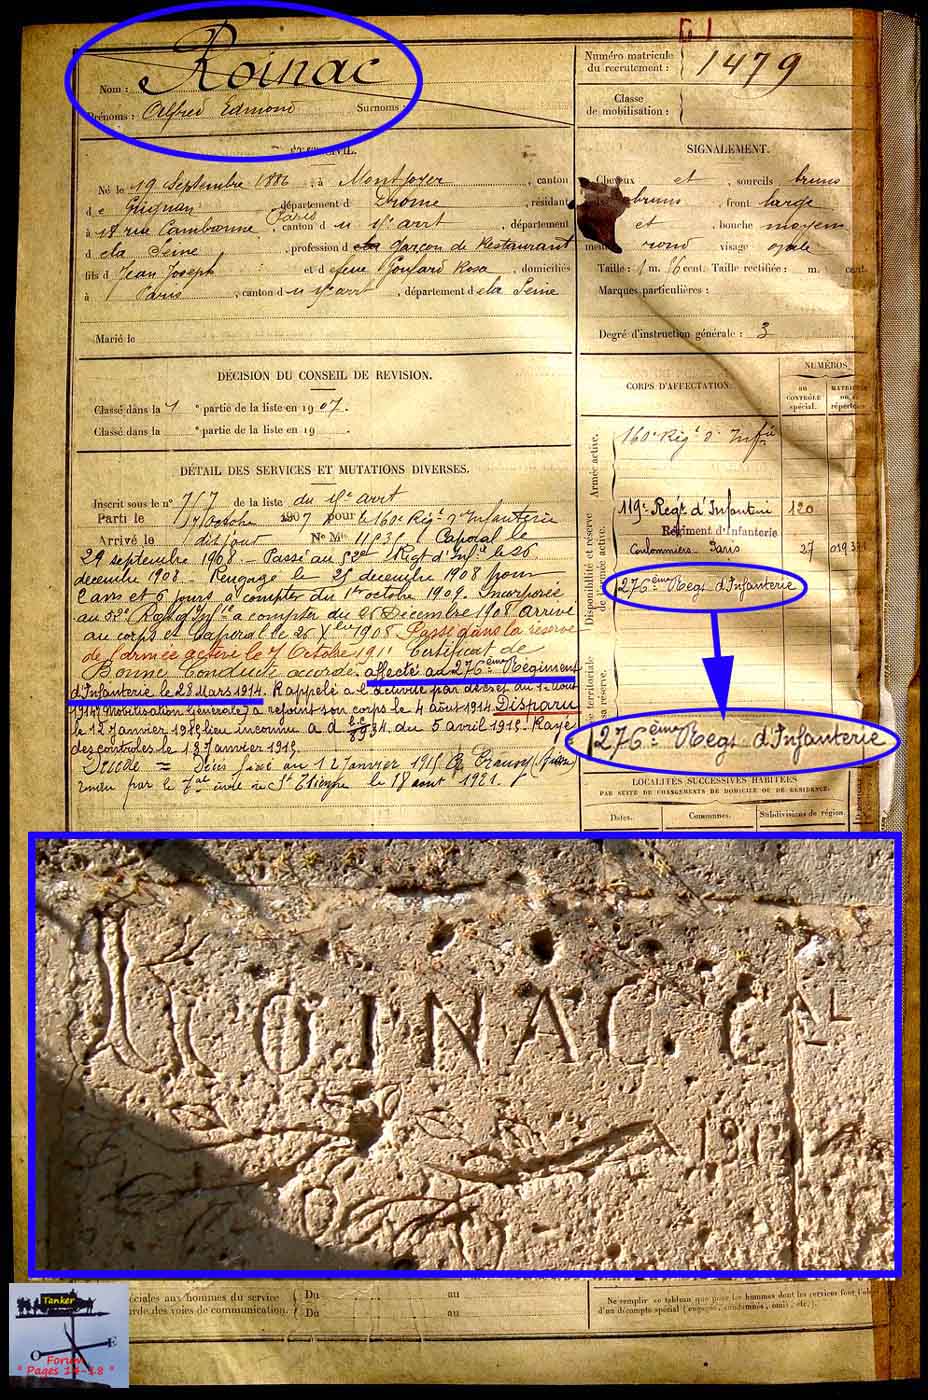 G I
Roinac
Nom :
Prénoms : Alfred Edmond Surnoms :
Numéro matricule
du recrutement : 1479
Classe
de mobilisation :
ÉTAT CIVIL.
Né le 19 Septembre 1886, à Montjoyer, canton
d e Grignan, département d Drôme, résidant
Paris
à 18 rue Cambronne, canton d u 15e arrt, département
d e la Seine, profession d e Garçon de Restaurant
fils d Jean Joseph et d e feue Goulard Rosa, domiciliés
à Paris, canton d u 15e arrt, département d e la Seine
Marié le
SIGNALEMENT.
Cheveux et, sourcils bruns
bruns, front large
et, bouche moyenne
rond visage ovale
Taille : 1 m. 56 cent. Taille rectifiée : m. cent.
Marques particulières :
Degré d'instruction générale : 3
DÉCISION DU CONSEIL DE REVISION.
Classé dans la 1 e partie de la liste en 1907.
Classé dans la e partie de la liste en 19
CORPS D'AFFECTATION.
NUMÉROS
au
CONTRÔLE
spécial.
Armée active.
160e Régt d'Inftie
Disponibilité et réserve
de l'armée active.
119e Régt d'Infanterie 120
Régiment d'Infanterie
Coulommiers Paris 27
276ème Regt d'Infanterie
276ème Regt d'Infanterie
DÉTAIL DES SERVICES ET MUTATIONS DIVERSES.
Inscrit sous le n° 757 de la liste du 15e arrt
Parti le 7 Octobre 1907 pour le 160e Régt d'Infanterie
Arrivé le dit jour N° Mle 11535. Caporal le
29 septembre 1908. Passé au 52e Régt d'Inf.ie le 26
decembre 1908. Rengagé le 25 decembre 1908 pour
2 ans et 6 jours à compter du 1er octobre 1909. Incorporé
au 52e Régt d'Inf.ie à compter du 26 Décembre 1908 arrivé
au corps et Caporal le 26 Xbre 1908. Passé dans la réserve
de l'armée active le 7 Octobre 1911 Certificat de
Bonne Conduite accordé. affecté au 276ème Régiment
d'Infanterie le 28 Mars 1914. Rappelé à l'activité par décret du 1er Août
1914 (Mobilisation Générale) a rejoint son corps le 4 août 1914. Disparu
le 12 Janvier 1915 lieu inconnu a d 34. du 5 avril 1915. Rayé
des controles le 13 Janvier 1915.
Décédé = Décès fixé au 12 Janvier 1915 à Crouy (Aisne)
rendu par le Tal civile de St Etienne le 18 août 1921.
LOCALITÉS SUCCESSIVES HABITÉES
PAR SUITE DE CHANGEMENTS DE DOMICILE OU DE RÉSIDENCE.
Dates. Communes. Subdivisions de région.
ROINAC. CAL
191
ciales aux hommes du service
arde des voies de communication.
Du au
Du au
au
au
Ne remplir ce tableau que pour les hommes dont les services font l'ob
d'un décompte spécial (engagés, condamnés, omis, etc.).
Tanker
O E
Forum
" Pages 14-18 "